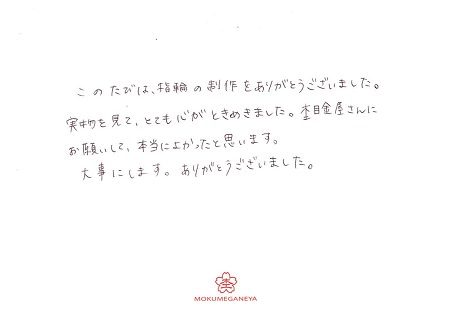 このたびは、指輪の制作をありがとうございました。
実物を見て、とても心がときめきました。杢目金屋さんに
お願いして、本当によかったと思います。
大事にします。ありがとうございました。
杢
MOKUMEGANEYA